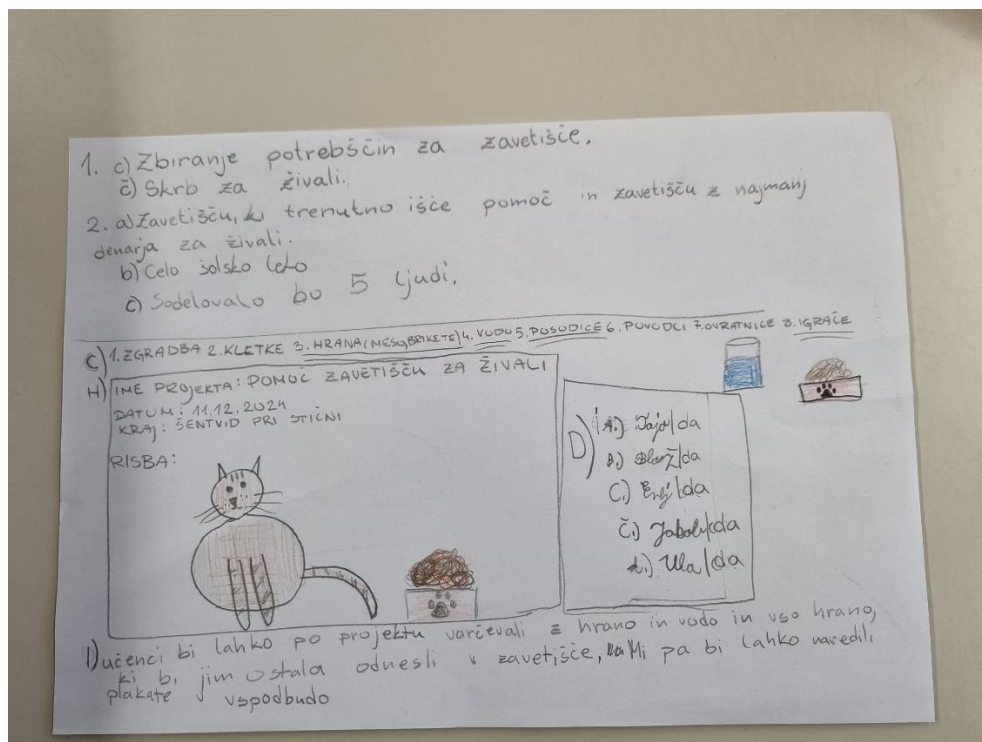 1. c) Zbiranje potrebščin za zavetišče.
č) Skrb za živali.
2. a) Zavetišču, ki trenutno išče pomoč in zavetišču z najmanj
denarja za živali.
b) Celo šolsko leto
c) Sodelovalo bo 5 ljudi.
C) 1. ZGRADBA 2. KLETKE 3. HRANA (MESO, BRIKETE) 4. VODO 5. POSODICE 6. POVODCI 7. OVRATNICE 8. IGRAČE
H) IME PROJEKTA: POMOČ ZAVETIŠČU ZA ŽIVALI
DATUM: 11.12.2024
KRAJ: ŠENTVID PRI STIČNI
RISBA:
D)
A.) Taja/da
B.) Blaž/da
C.) /da
Č.) /da
d.) Ula/da
I) učenci bi lahko po projektu varčevali z hrano in vodo in vso hrano,
ki bi jim ostala odnesli v zavetišče, Mi pa bi lahko naredili
plakate v vspodbudo